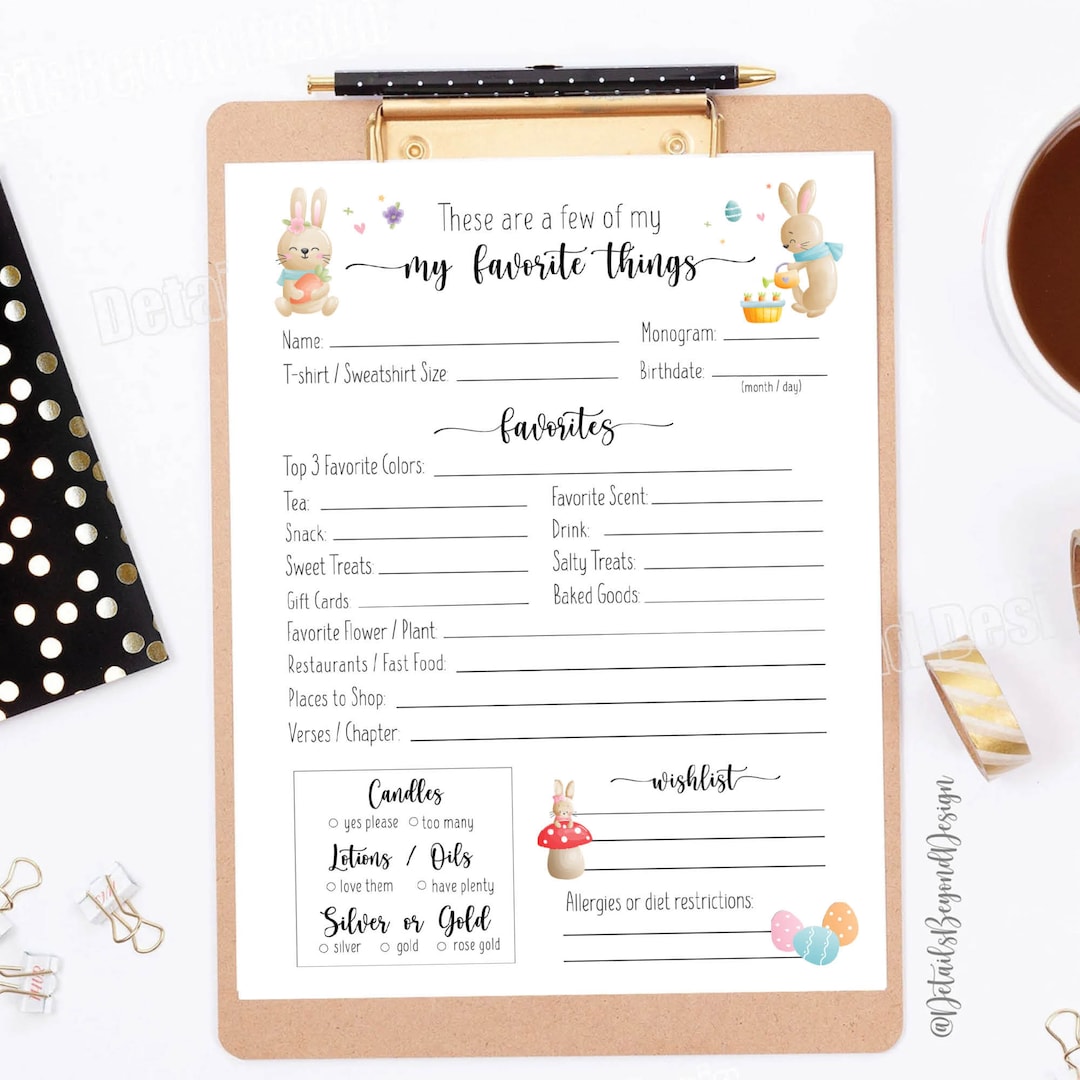 These are a few of my
my favorite things
Name:
Monogram:
T-shirt / Sweatshirt Size:
Birthdate:
(month / day)
favorites
Top 3 Favorite Colors:
Tea:
Favorite Scent:
Snack:
Drink:
Sweet Treats:
Salty Treats:
Gift Cards:
Baked Goods:
Favorite Flower / Plant:
Restaurants / Fast Food:
Places to Shop:
Verses / Chapter:
Candles
yes please too many
Lotions / Oils
love them have plenty
Silver or Gold
silver gold rose gold
wishlist
Allergies or diet restrictions:
@DetailsBeyondDesign